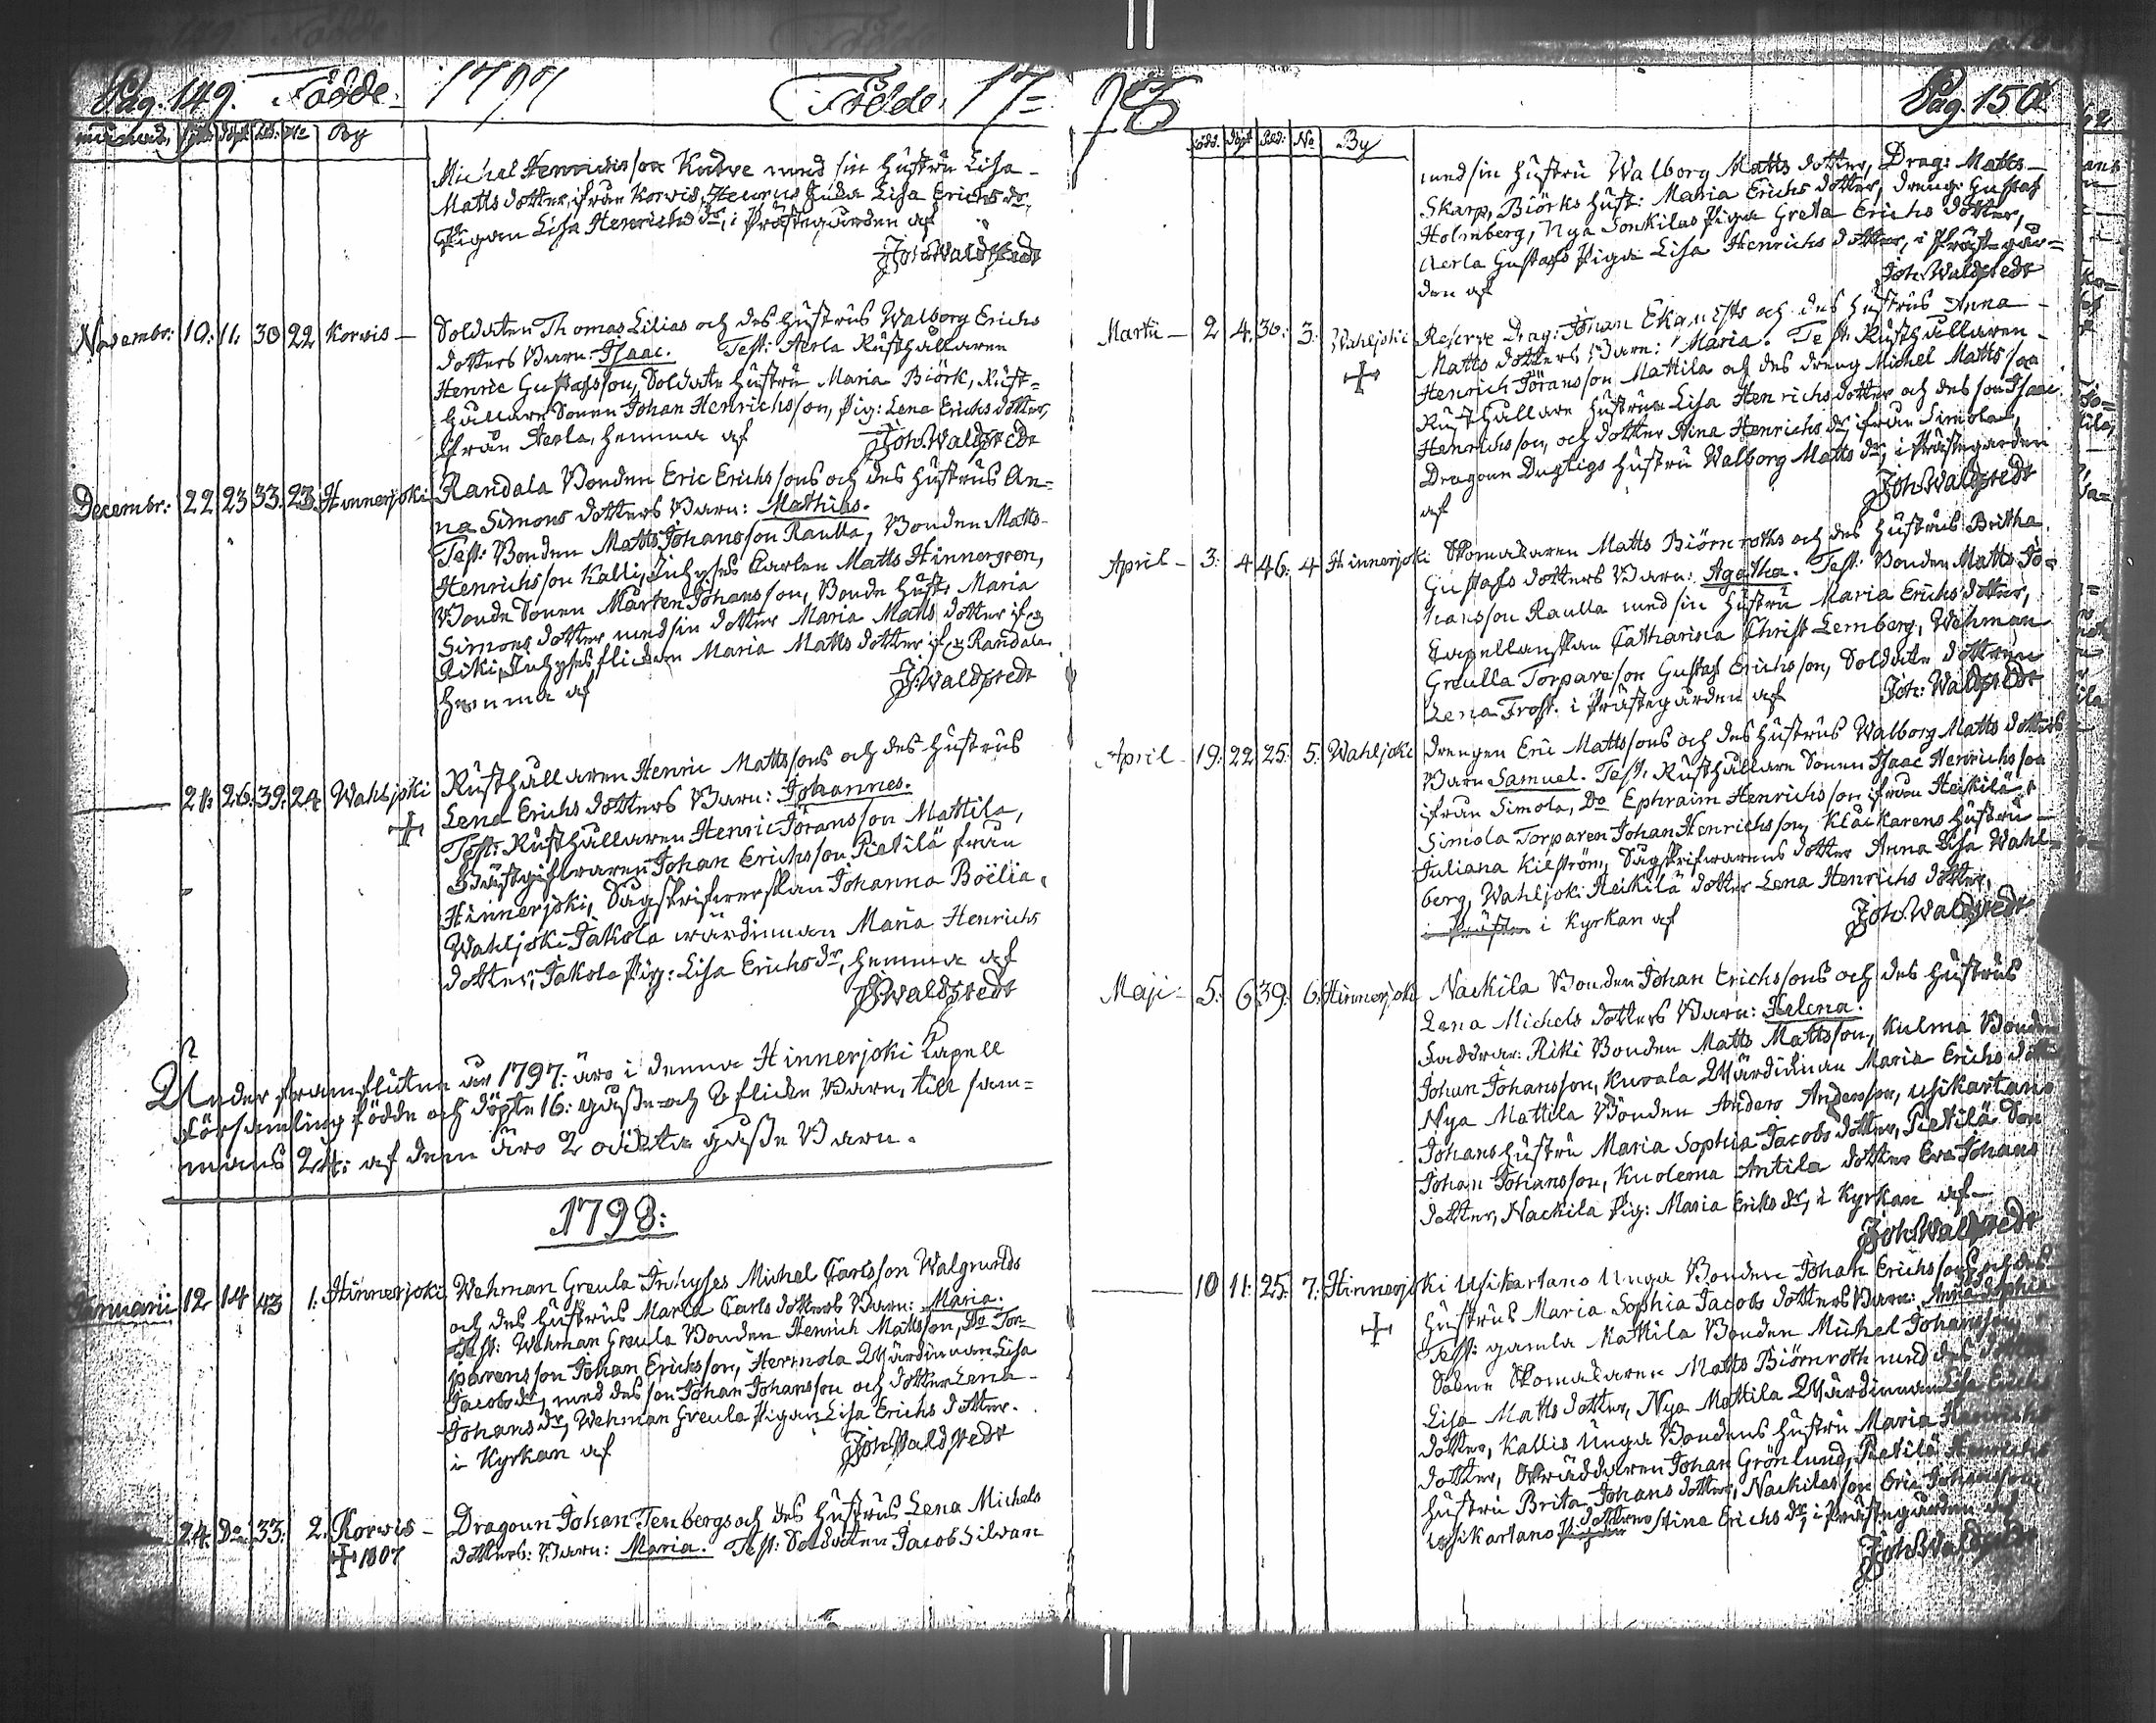 Pag. 149. Födde 1797 Födde 17=
månad, född döpt ård: No By
Michel Henrichsson Kodve med sin hustru Lisa
Matts dotter, ifrån Korvis, Henrics Lisa Erichs dr,
Pigan Lisa Henrichs dr, i Prästegården af
Joh: Waldstedt
Novembr: 10: 11: 30 22 Korvis Soldaten Thomas Lilias och des hustrus Walborg Erichs
dotters Barn: Isaac. Test: Aerla Rusthållaren
Henric Gustafsson, Soldate hustru Maria Biörk, Rust=
hållare Sonen Johan Henrichsson, Pig: Lena Erichs dotter,
ifrån Aerla, hemma af Joh: Waldstedt
Decembr: 22 23 33: 23: Hinnerjoki Randala Bonden Eric Erichssons och des hustrus An=
na Simons dotters Barn: Mathias.
Test: Bonden Matts Johansson Raulla, Bonden Matts
Henrichsson Kalli, Inhyses Karlen Matts Hinnergren,
Bonde Sonen Mårten Johansson, Bonde hust: Maria
Simons dotter med sin dotter Maria Matts dotter ifr:
Riki, Inhyses flickan Maria Matts dotter ifr: Randala
hemma af J: Waldstedt
21: 26: 39: 24 Wahljoki Rusthållaren Henric Mattssons och des hustrus
Lena Erichs dotters Barn: Johannes.
Test: Rusthållaren Henric Jöransson Mattila,
Gästgifwaren Johan Erichsson Pietilä från
Hinnerjoki, Sågskrifwerskan Johanna Boëlia,
Wahljoki Jakola wärdinnan Maria Henrichs
dotter, Jakola Pig: Lisa Erichs dr, hemma af
J: Waldstedt
Under framflutne år 1797: äro i denna Hinnerjoki Capell
församling födde och döpte 16: gåsse och 8 flicke Barn, till sam=
mans 24: af dem äro 2 oäckta gåsse Barn.
1798:
Januarii 12 14 43 1: Hinnerjoki Wehman Greula Inhyses Michel Carlsson Walgrunds
och des hustrus Maria Carls dotters Barn: Maria.
Test: Wehman Greula Bonden Henrich Mattsson, Do Tor=
parensson Johan Erichsson, Hermola Wärdinnan Lisa
Jacobs dr, med des son Johan Johansson och dotter Lena
Johans dr, Wehman Greula Pigan Lisa Erichs dotter.
i Kyrkan af Joh: Waldstedt
24: Do 33: 2. Korvis Dragoun Johan Tenbergs och des hustrus Lena Michels
1807 dotters: Barn: Maria. Test: Soldaten Jacob Silvan
98 Pag. 150
född. döpt ård: No By
med sin hustru Walborg Matts dotter, Drag: Matts
Skarp, Biörks hust: Maria Erichs dotter, dreng: Gustaf
Holmberg, Nya Sonkilas Piga Greta Erichs dotter,
Aerla Gustafs Piga Lisa Henrichs dotter, i Prästegår=
den af Joh: Waldstedt
Martii 2 4: 30: 3: Wahljoki Reserve Drag: Johan Ekqwists och des hustrus Anna
Matts dotters Barn: Maria. Test: Rusthållaren
Henrich Jöransson Mattila och des dreng Michel Mattsson
Rusthållare hustrun Lisa Henrichs dotter och des son Isaac
Henrichsson, och dotter Stina Henrichs dr ifrån Simola,
Dragoun Dugtigs hustru Walborg Matts dr, i Prästegården
af Joh: Waldstedt
April 3: 4 46: 4 Hinnerjoki Skomakaren Matts Biörnroths och des hustrus Britha
Gustafs dotters Barn: Agatha. Test: Bonden Matts Jo=
hansson Raulla med sin hustru Maria Erichs dotter,
Capellanskan Catharina Christ: Lemberg, Wehman
Greulla Torpareson Gustaf Erichsson, Soldate dottren
Lena Frost. i Prästegården af Joh: Waldstedt
April 19: 22 25: 5: Wahljoki drengen Eric Mattssons och des hustrus Walborg Matts dotters
Barn Samuel. Test: Rusthållare Sonen Isaac Henrichsson
ifrån Simola, Do Ephraim Henrichsson ifrån Heikilä,
Simola Torparen Johan Henrichsson, Klåckarens hustru
Juliana Kilström, Sågskrifwarens dotter Anna Lisa Wahl=
berg, Wahljoki Heikilä dotter Lena Henrichs dotter,
i Kyrkan af Joh: Waldstedt
Maji 5: 6 39: 6: Hinnerjoki Nackila Bonden Johan Erichssons och des hustrus
Lena Michels dotters Barn: Helena.
Faddrar: Riki Bonden Matts Mattsson, Kulma Bonden
Johan Johansson, Kuvala Wärdinnan Maria Erichs dotter
Nya Mattila Bonden Anders Andersson, Usikartano
Johans hustru Maria Sophia Jacobs dotter, Pietilä Son
Johan Johansson, Kuolema Antila dotter Eva Johans
dotter, Nackila Pig: Maria Eriks dr, i Kyrkan af
Joh: Waldstedt
10 11: 25: 7: Hinnerjoki Usikartano Unga Bonden Johan Erichssons och des
hustrus Maria Sophia Jacobs dotters Barn: Anna Sophia
Test: gamla Mattila Bonden Michel Johansson
Skomakaren Matts Biörnroth med des dotter
Lisa Matts dotter, Nya Mattila Wärdinnan
dotter, Kallis Unga Bondens hustru Maria Henrichs
dotter, Skräddaren Johan Grönlund, Pietilä
hustru Brita Johans dotter, Nackilas son Eric Johansson,
Usikartano dottren Stina Erichs dr, i Prästegården af
Joh: Waldstedt